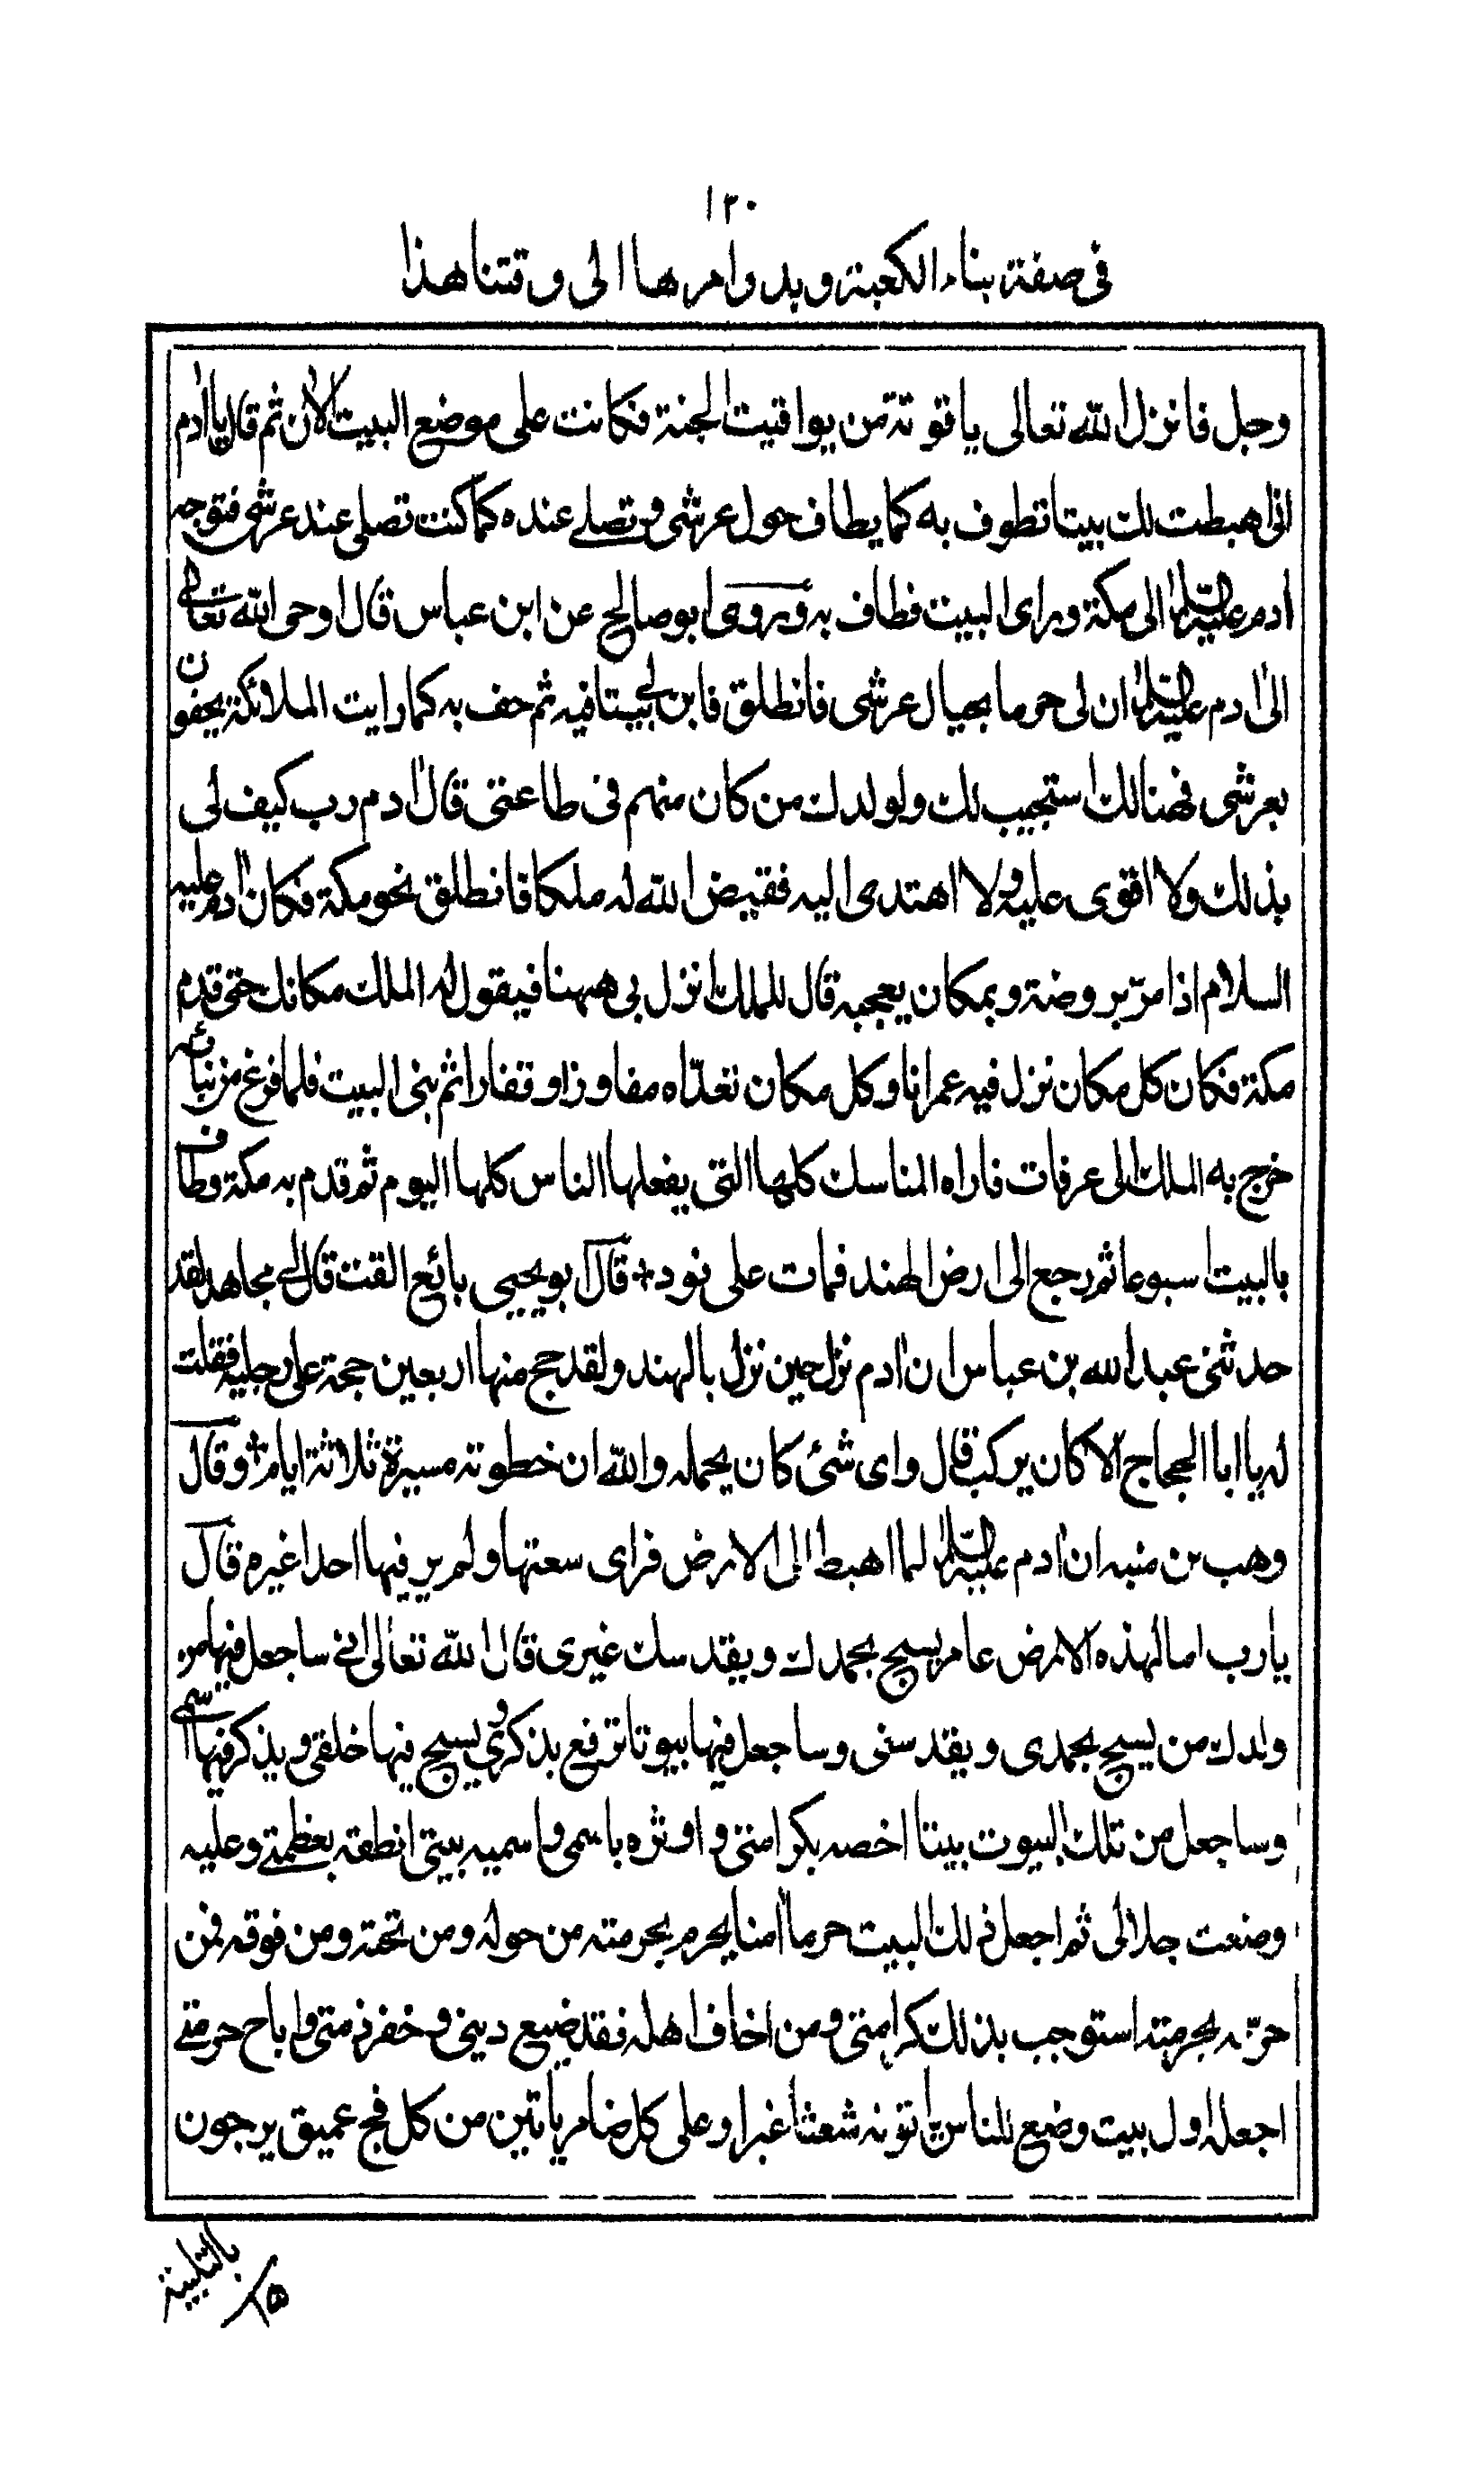 ١٣٠
فى صفة بناء الكعبة وبدو امرها الى وقتنا هذا
وجل فانزل الله تعالى ياقوتة من يواقيت الجنة فكانت على موضع البيت الآن ثم قال يا ادم
انى اهبطت لك بيتا تطوف به كما يطاف حول عرشى وتصلى عنده كما كنت تصلى عند عرشى فتوجه
ادم عليه السلام الى مكة وراى البيت فطاف به وروى ابو صالح عن ابن عباس قال اوحى الله تعالى
الى ادم عليه السلام ان لى حرما بحيال عرشى فانطلق فابن لى بيتا فيه ثم حف به كما رايت الملائكة يحفون
بعرشى فهنالك استجيب لك ولولدك من كان منهم فى طاعتى قال ادم رب كيف لى
بذلك ولا اقوى عليه ولا اهتدى اليه فقيض الله له ملكا فانطلق نحو مكة فكان ادم عليه
السلام اذا مرّ بروضة وبمكان يعجبه قال للملك انزل بى ههنا فيقول له الملك مكانك حتى قدم
مكة فكان كل مكان نزل فيه عمرانا وكل مكان تعدّاه مفاوز او قفارا ثم بنى البيت فلما فرغ من بنائه
خرج به الملك الى عرفات فاراه المناسك كلها التى يفعلها الناس كلها اليوم ثم قدم به مكة وطاف
بالبيت اسبوعا ثم رجع الى ارض الهند فمات على نود + قال ابو يحيى بائع القت قال لى مجاهد لقد
حدثنى عبد الله بن عباس ان ادم نزل حين نزل بالهند ولقد حج منها اربعين حجة على رجليه فقلت
له يا ابا الحجاج الا كان يركب قال واى شئ كان يحمله والله ان خطوته مسيرة ثلاثة ايام + وقال
وهب بن منبه ان ادم عليه السلام لما اهبط الى الارض فراى سعتها ولم ير فيها احدا غيره قال
يا رب اما لهذه الارض عامر يسبح بحمدك ويقدسك غيرى قال الله تعالى انى ساجعل فيها من
ولدك من يسبح بحمدى ويقدسنى وساجعل فيها بيوتا ترفع بذكرى ويسبح فيها خلقى ويذكر فيها اسمى
وساجعل من تلك البيوت بيتا اخصه بكرامتى واوثره باسمى واسميه بيتى انطقه بعظمتى وعليه
وضعت جلالى ثم اجعل ذلك البيت حرما امنا يحرم بحرمته من حوله ومن تحته ومن فوقه فمن
حرّمه بحرمته استوجب بذلك كرامتى ومن اخاف اهله فقد ضيع دينى وخفر ذمتى واباح حرمتى
اجعله اول بيت وضع للناس ياتونه شعثا غبرا وعلى كل ضامر ياتين من كل فج عميق يرجون
بالتلبية